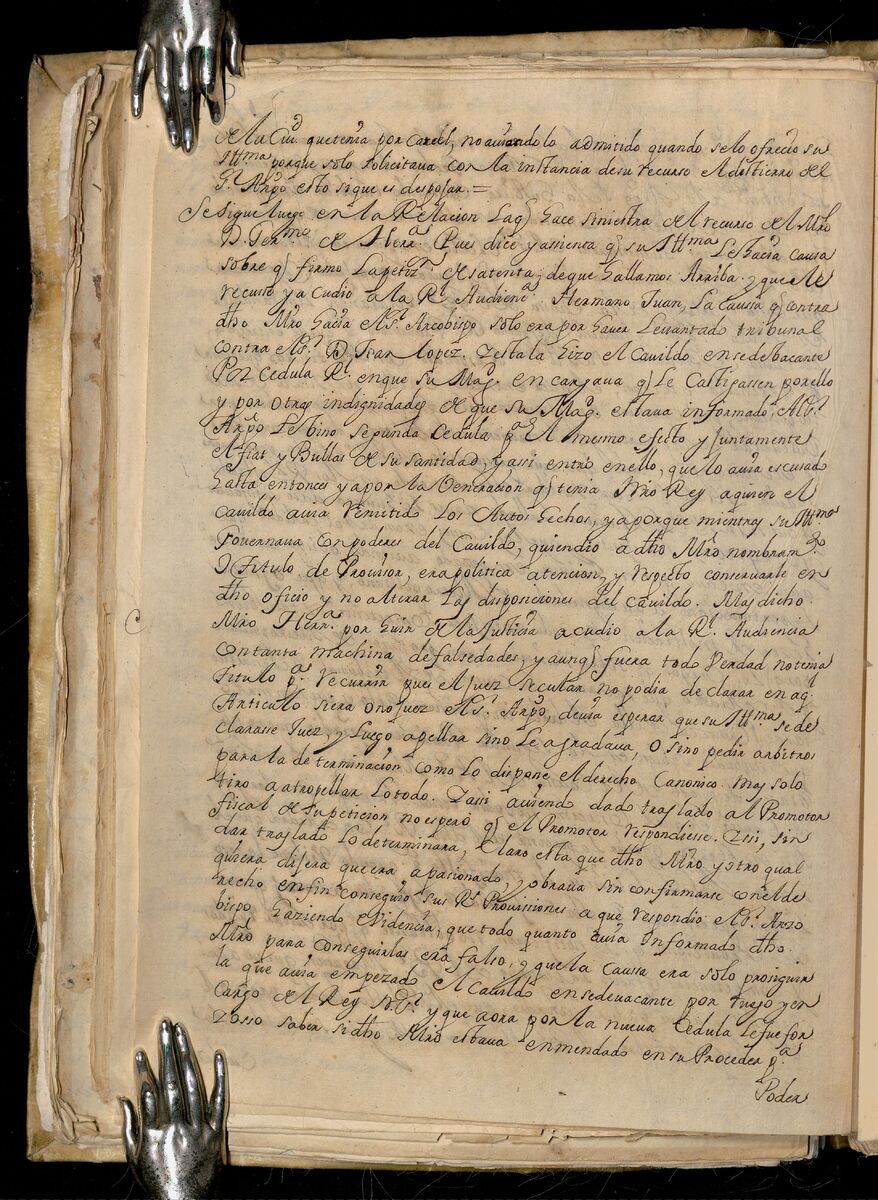 de la Ciud. que tenia por carcel, no aviendolo admitido quando se lo ofrecio su
Ill.ma porque solo solicitava con la instancia de su recurso el destierro del
S.r Arzpo esto si que es desposar. =
Se sigue luego en la Relacion La q hace siniestra del recurso del Mro
D. Ger.mo de Herr.a Pues dice y assienta q su Ill.ma Le hacia causa
sobre q firmo La petiz.n desatenta, de que hallamos Arriba, y que le
recurso y acudio a la R.l Audienc.a Hermano Juan, La Caussa q contra
dho Mro hacia el S.r Arcobispo solo era por haver Levantado tribunal
contra el S.r D. Juan Lopez. Y esta la hizo el Cavildo en sede bacante
Por Cedula R.l en que su Mag. encargava q Le Castigassen por ello
y por otras indignidades de que su Mag. estava informado. Al S.r
Arzpo Les vino segunda Cedula p.a el mismo efecto y juntamente
el fiat y Bullas de su santidad, y assi entro en ello, que lo avia escusado
hasta entonces ya por la Veneracion q tenia Nro Rey a quien el
cavildo avia remitido Los Autos hechos, ya porque mientras su Ill.ma
Governava con poderes del Cavildo, quien dio a dho Mro nombram.to
y Titulo de Provisor, era politica atencion, y respecto conservarle en
dho oficio y no alterar Las disposiciones del cavildo. Mas dicho
Mro Herr.a por huir de la Justicia acudio a la R.l Audiencia
con tanta machina de falsedades, y aunq fuera todo Verdad no tenia
Titulo p.a recurrir pues el Juez secular no podia declarar en aq.l
Articulo si era o no Juez el S.r Arzpo, devia esperar que su Ill.ma se de
clarasse Juez, y Luego apellar si no Le agradava, O sino pedir arbitros
para la determinacion como Lo dispone el derecho Canonico. mas solo
tiro a atropellar Lo todo. Y assi aviendo dado traslado al Promotor
fiscal de su peticion no espero q el Promotor respondiesse. Y si, sin
dar traslado Lo determinara, Claro esta que dho Mro y otro qual
quiera dijera que era apasionado, y obrava sin confirmarse con el de
recho en fin conseguio sus R.s Provissiones a que respondio el S.r Arzo
bispo haziendo Evidencia, que todo quanto avia Informado dho
Mro para conseguirlas era falso, y que la Caussa era solo prosiguir
la que avia empezado el Cavildo en sede vacante por ruego y en
Cargo del Rey N. S.r y que aora por la nueva Cedula Le fue for
zosso saber si dho Mro estava enmendado en su Proceder p.a
Poder